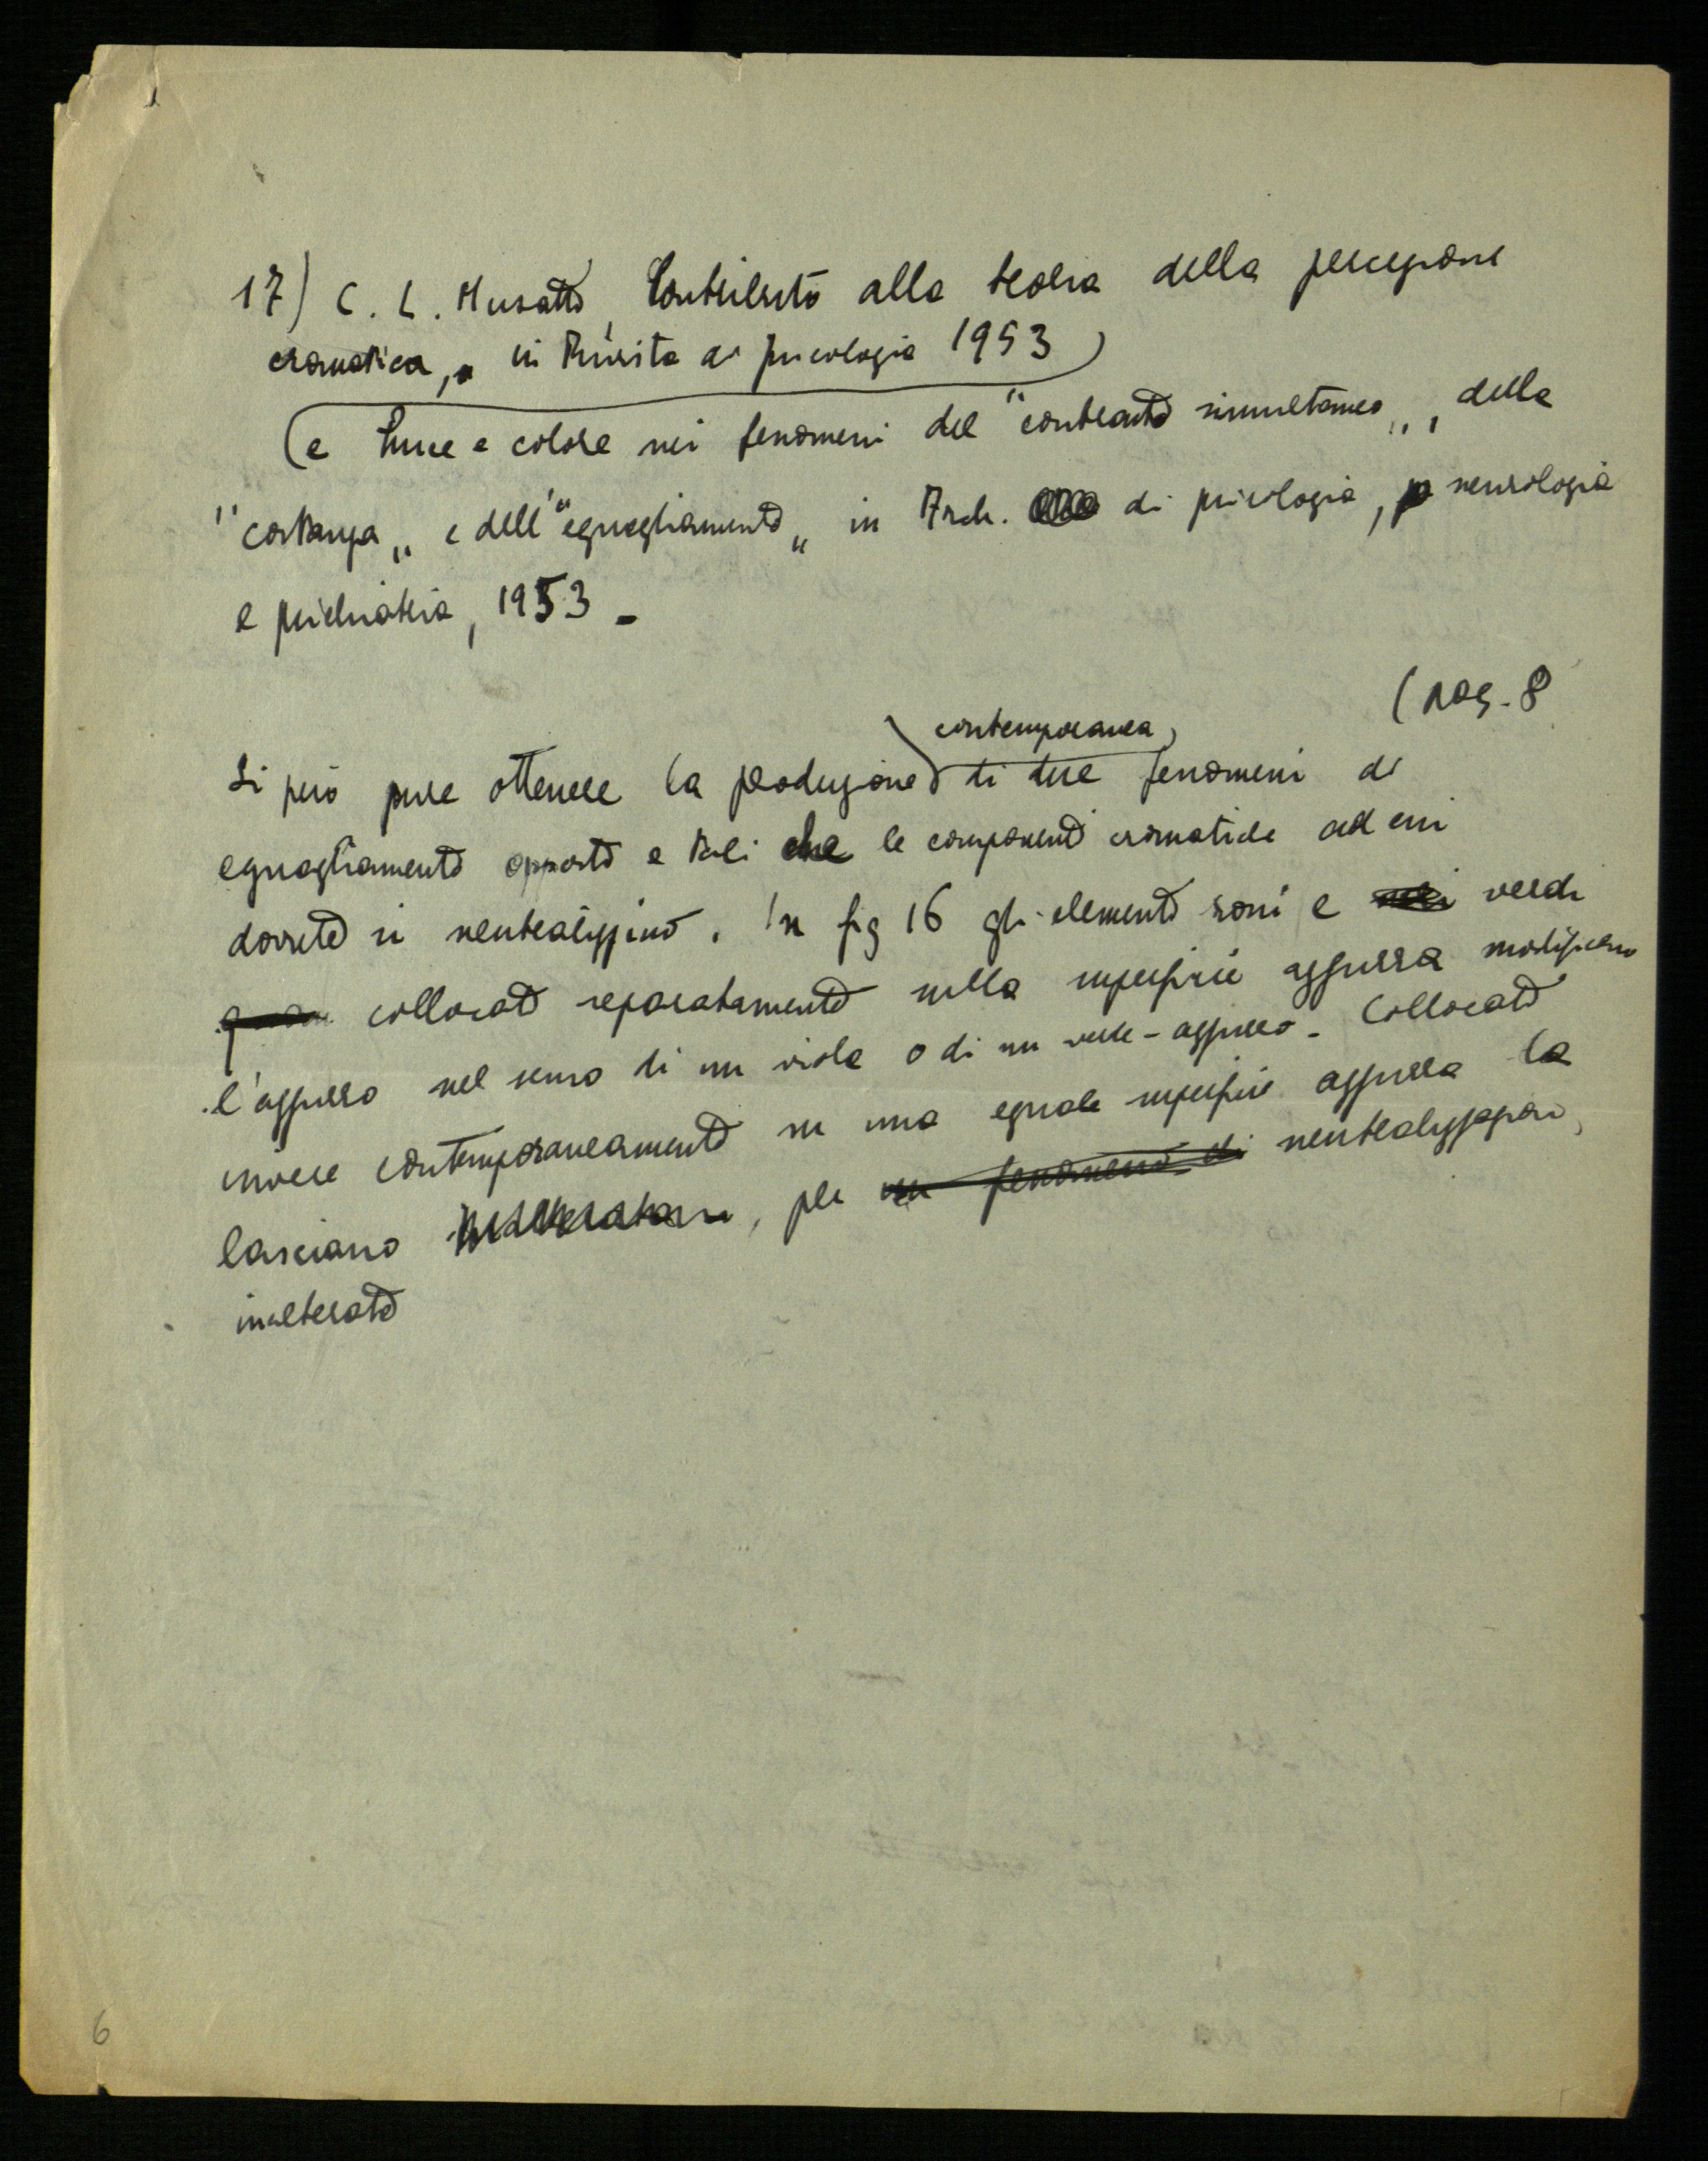 17) C. L. Musatti, Contributo alla teoria della percezione
cromatica, in Rivista di psicologia 1953)
(e Luce e colore nei fenomeni del "contrasto simultaneo„, della
"costanza„ e dell'"eguagliamento„ in Arch. di psicologia, neurologia
e psichiatria, 1953 -
(pag. 8
contemporanea
Si può pure ottenere la produzione di due fenomeni di
eguagliamento opposti e tali che le componenti cromatiche ad essi
dovute si neutralizzino. In fig 16 gli elementi rossi e verdi
collocati separatamente sulla superficie azzurra modificano
l'azzurro nel senso di un viola o di un verde-azzurro. Collocati
invece contemporaneamente su una eguale superficie azzurra la
lasciano, per un fenomeno di neutralizzazione,
inalterata
6